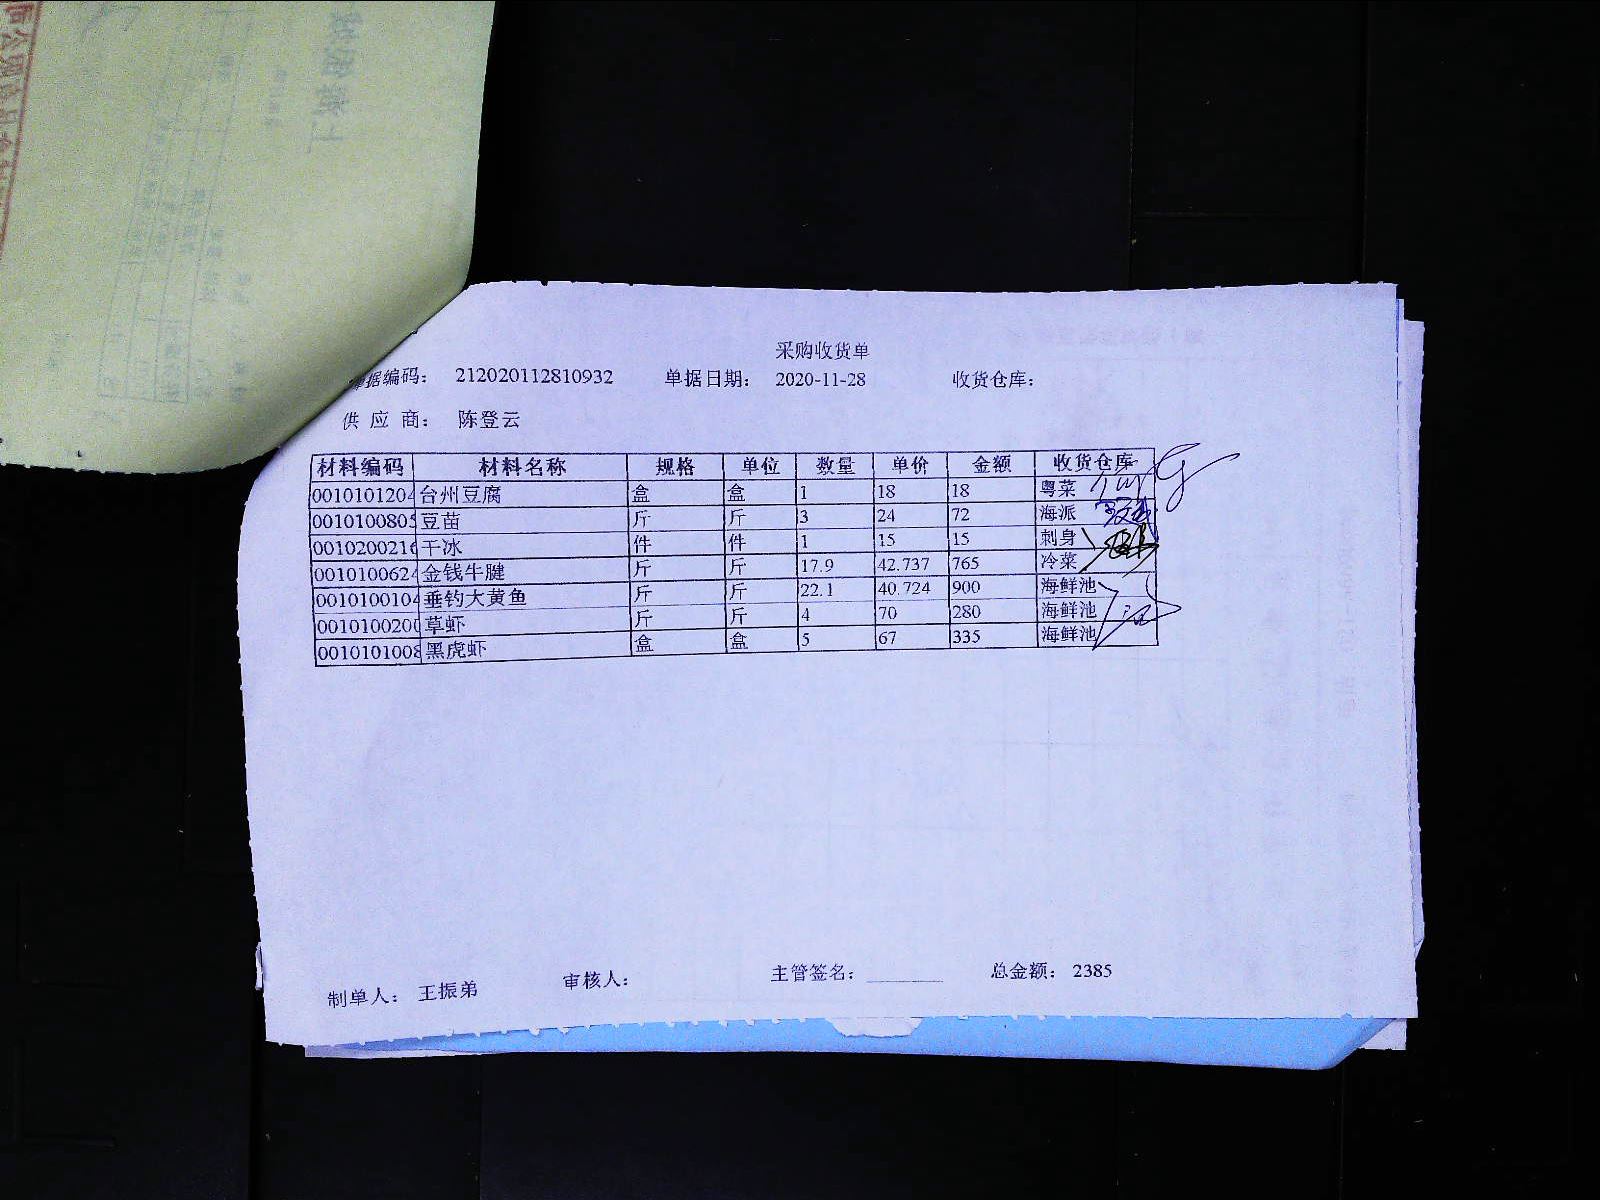 采购收货单
单据编码： 212020112810932 单据日期： 2020-11-28 收货仓库：
供 应 商： 陈登云
材料编码 材料名称 规格 单位 数量 单价 金额 收货仓库
0010101204 台州豆腐 盒 盒 1 18 18 粤菜
0010100805 豆苗 斤 斤 3 24 72 海派
0010200216 干冰 件 件 1 15 15 刺身
0010100624 金钱牛腱 斤 斤 17.9 42.737 765 冷菜
0010100104 垂钓大黄鱼 斤 斤 22.1 40.724 900 海鲜池
0010100200 草虾 斤 斤 4 70 280 海鲜池
0010101008 黑虎虾 盒 盒 5 67 335 海鲜池
制单人： 王振弟 审核人： 主管签名： 总金额： 2385